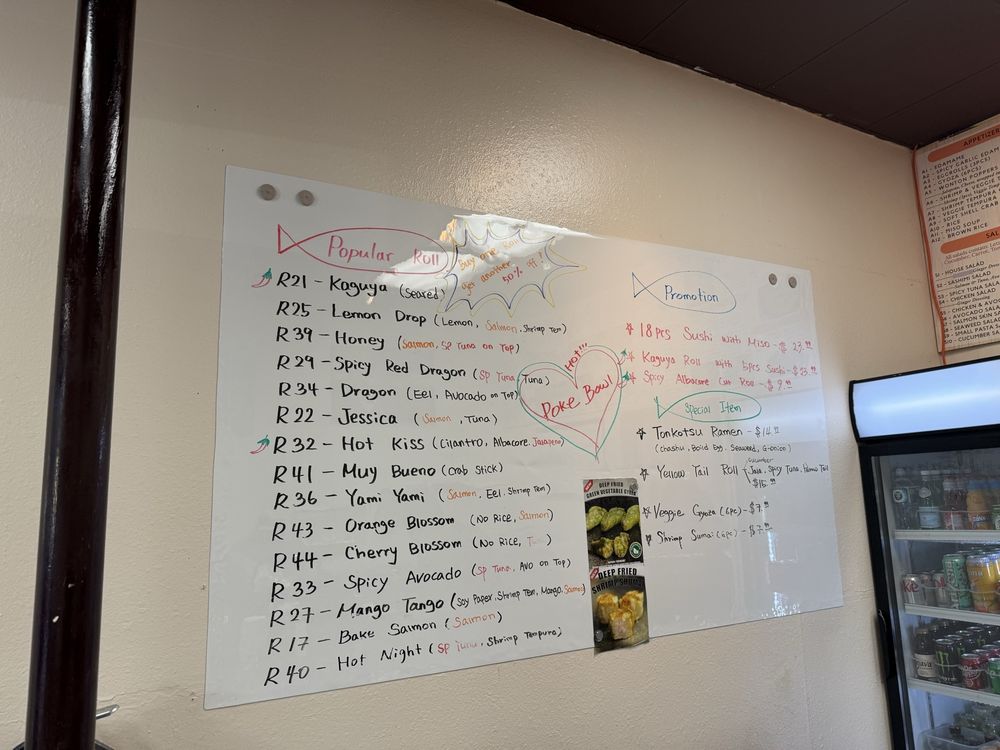 Popular Roll
Buy one Roll
get another
50% off!
R21 - Kaguya (Seared)
R25 - Lemon Drop (Lemon, Salmon, Shrimp Tem)
R39 - Honey (Salmon, SP Tuna on Top)
R29 - Spicy Red Dragon (SP Tuna, Tuna)
R34 - Dragon (Eel, Avocado on Top)
R22 - Jessica (Salmon, Tuna)
R32 - Hot Kiss (Cilantro, Albacore, Jalapeno)
R41 - Muy Bueno (Crab Stick)
R36 - Yami Yami (Salmon, Eel, Shrimp Tem)
R43 - Orange Blossom (No Rice, Salmon)
R44 - Cherry Blossom (No Rice, )
R33 - Spicy Avocado (SP Tuna, Avo on Top)
R27 - Mango Tango (Soy Paper, Shrimp Tem, Mango, Salmon)
R17 - Bake Salmon (Salmon)
R40 - Hot Night (SP Tuna, Shrimp Tempura)
HOT!!!
Poke Bowl
Promotion
18 pcs Sushi with Miso - $ 23.
Kaguya Roll with 5pcs Sushi - $
Spicy Albacore Cut Roll - $ 9.
Special Item
Tonkotsu Ramen - $14.
(chashu, Boild Egg, Seaweed, G-onion)
cucumber
Yellow Tail Roll Spicy Tuna, Tail
$15.
Veggie Gyoza (6pc) - $7.
Shrimp Sumai (6pc) - $7.
DEEP FRIED
GREEN VEGETABLE GYOZA
DEEP FRIED
SHRIMP SHUMAI
APPETIZER
A1 - EDAMAME
A2 - SPICY GARLIC EDAM
A3 - EGGROLLS (3PCS)
A4 - GYOZA (6PCS)
A5 - WONTON POPPERS
A6 - SHRIMP & VEGGIE
A7 - SHRIMP TEMPURA
A8 - VEGGIE TEMPURA
A9 - SOFT SHELL CRAB
A10 - RICE
A11 - MISO SOUP
A12 - BROWN RICE
SAL
S1 - HOUSE SALAD
S2 - SASHIMI SALAD
S3 - SPICY TUNA SALA
S4 - CHICKEN SALAD
S5 - CHICKEN & AVO
S6 - AVOCADO SALA
S7 - SALMON SKIN
S8 - SEAWEED SALA
S9 - SMALL PASTA S
S10 - CUCUMBER S